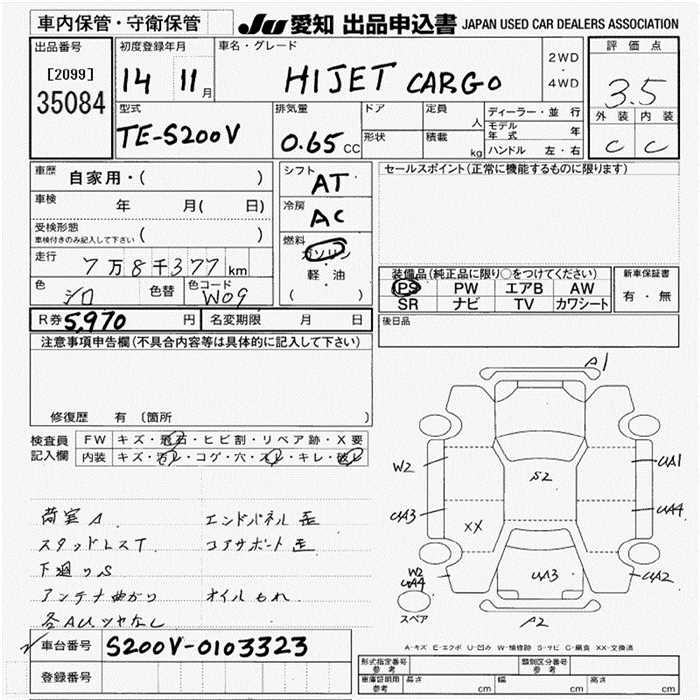 車内保管・守衛保管 JU 愛知 出品申込書 JAPAN USED CAR DEALERS ASSOCIATION
出品番号 初度登録年月 車名・グレード 2WD・4WD 評価点
[2099] 35084 14 11月 HIJET CARGO 3.5
外装 内装
C C
型式 排気量 ドア 定員 人 ディーラー・並行
TE-S200V 0.65 CC 形状 積載 kg モデル年式 年
ハンドル 左・右
車歴 自家用・( ) シフト AT セールスポイント(正常に機能するものに限ります)
車検 年 月( 日) 冷房 AC
受検形態 ( )
車検付きのみ記入して下さい
燃料 ガソリン・軽油
( )
走行 7万8千377km
色 シロ 色替 色コード W09
装備品(純正品に限り○をつけてください) 新車保証書
PS PW エアB AW 有・無
SR ナビ TV カワシート
R券 5,970 円 名変期限 月 日 後日品
注意事項申告欄(不具合内容等は具体的に記入して下さい)
修復歴 有 (箇所
検査員記入欄 FW キズ・飛石・ヒビ割・リペア跡・X要
内装 キズ・汚レ・コゲ・穴・スレ・キレ・破レ
荷室A エンドパネル歪
スタッドレスT コアサポート歪
下廻りS
アンテナ曲がり オイルもれ
各AUツヤなし
A1
W2 S2 UA1
UA3 XX UA4
W2 UA4 UA3 UA2
スペア A2
車台番号 S200V-0103323
登録番号
A-キズ E-エクボ U-凹み W-補修跡 S-サビ C-腐食 XX-交換済
形式指定番号 参考 類別区分番号 参考
車庫証明用 参考 長さ cm 幅 cm 高さ cm